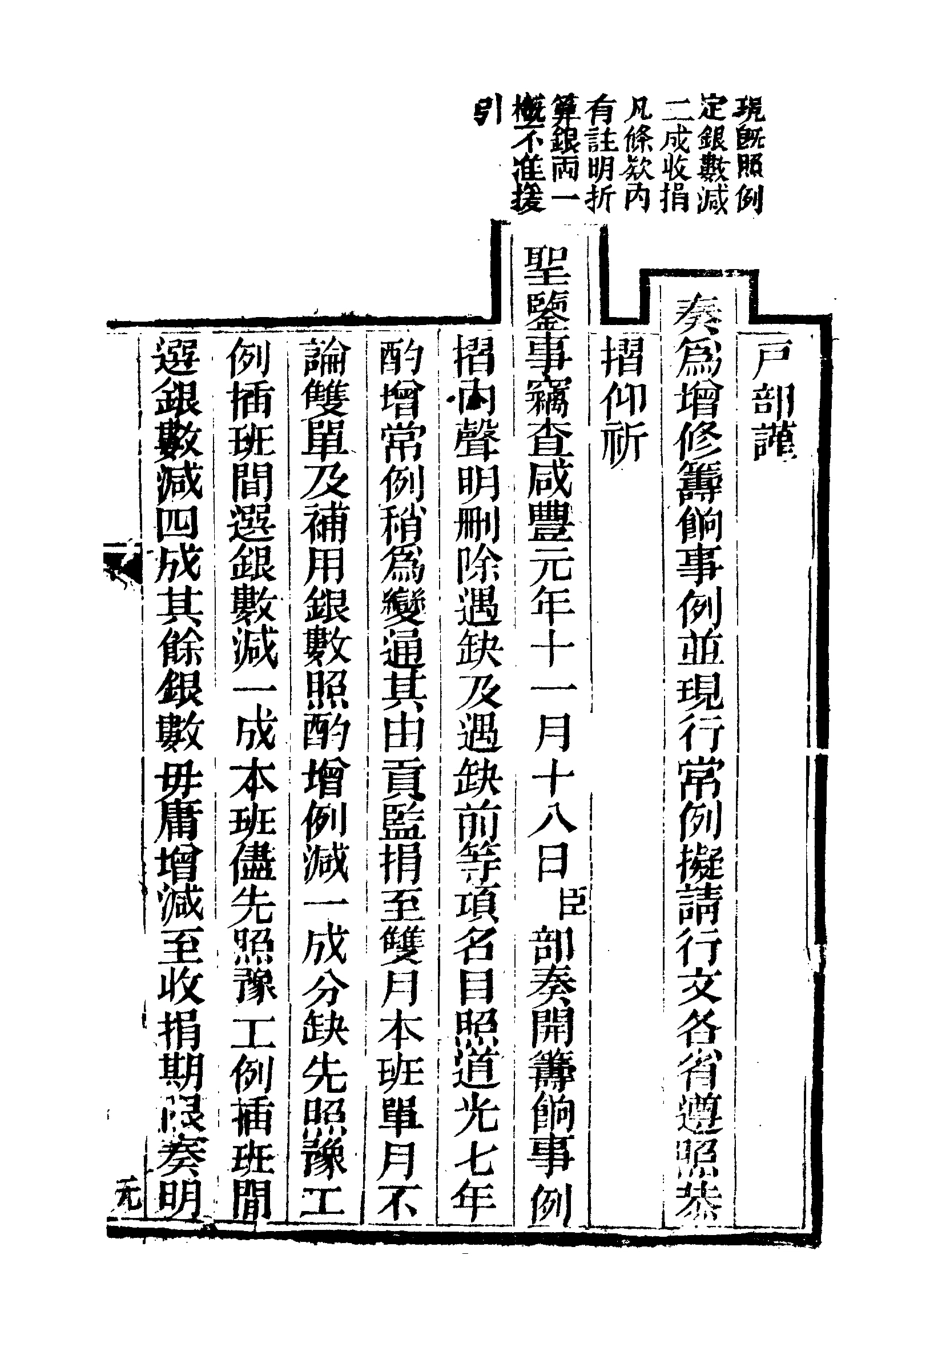 現既照例
定銀數減
二成收捐
凡條欵內
有註明折
算銀兩一
概不准援
引
戸部謹
奏爲增修籌餉事例並現行常例擬請行文各省遵照恭
摺仰祈
聖鑒事竊查咸豐元年十一月十八日臣部奏開籌餉事例
摺內聲明刪除遇缺及遇缺前等項名目照道光七年
酌增常例稍爲變通其由貢監捐至雙月本班單月不
論雙單及補用銀數照酌增例減一成分缺先照豫工
例插班間選銀數減一成本班儘先照豫工例插班間
選銀數減四成其餘銀數毋庸增減至收捐期限奏明
元